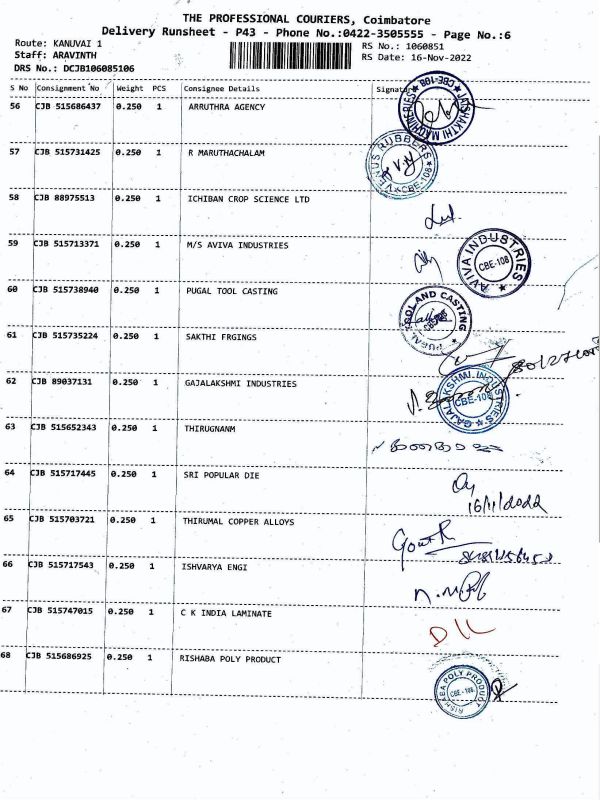 THE PROFESSIONAL COURIERS, Coimbatore
Delivery Runsheet - P43 - Phone No.:0422-3505555 - Page No.:6
Route: KANUVAI 1
Staff: ARAVINTH
DRS No.: DCJB106085106
RS No.: 1060851
RS Date: 16-Nov-2022
S No Consignment No Weight PCS Consignee Details Signature
56 CJB 515686437 0.250 1 ARRUTHRA AGENCY
JAISHAKTHI MACHINERIES ★ CBE-108 ★
57 CJB 515731425 0.250 1 R MARUTHACHALAM
VENUS RUBBERS ★ CBE-108 ★
58 CJB 88975513 0.250 1 ICHIBAN CROP SCIENCE LTD
59 CJB 515713371 0.250 1 M/S AVIVA INDUSTRIES
AVIVA INDUSTRIES ★ CBE-108
60 CJB 515738940 0.250 1 PUGAL TOOL CASTING
TOOL AND CASTING
61 CJB 515735224 0.250 1 SAKTHI FRGINGS
62 CJB 89037131 0.250 1 GAJALAKSHMI INDUSTRIES
GAJALAKSHMI INDUSTRIES ★ CBE-108
63 CJB 515652343 0.250 1 THIRUGNANM
64 CJB 515717445 0.250 1 SRI POPULAR DIE
16/11/2022
65 CJB 515703721 0.250 1 THIRUMAL COPPER ALLOYS
66 CJB 515717543 0.250 1 ISHVARYA ENGI
67 CJB 515747015 0.250 1 C K INDIA LAMINATE
68 CJB 515686925 0.250 1 RISHABA POLY PRODUCT
RISHABA POLY PRODUCT CBE - 108